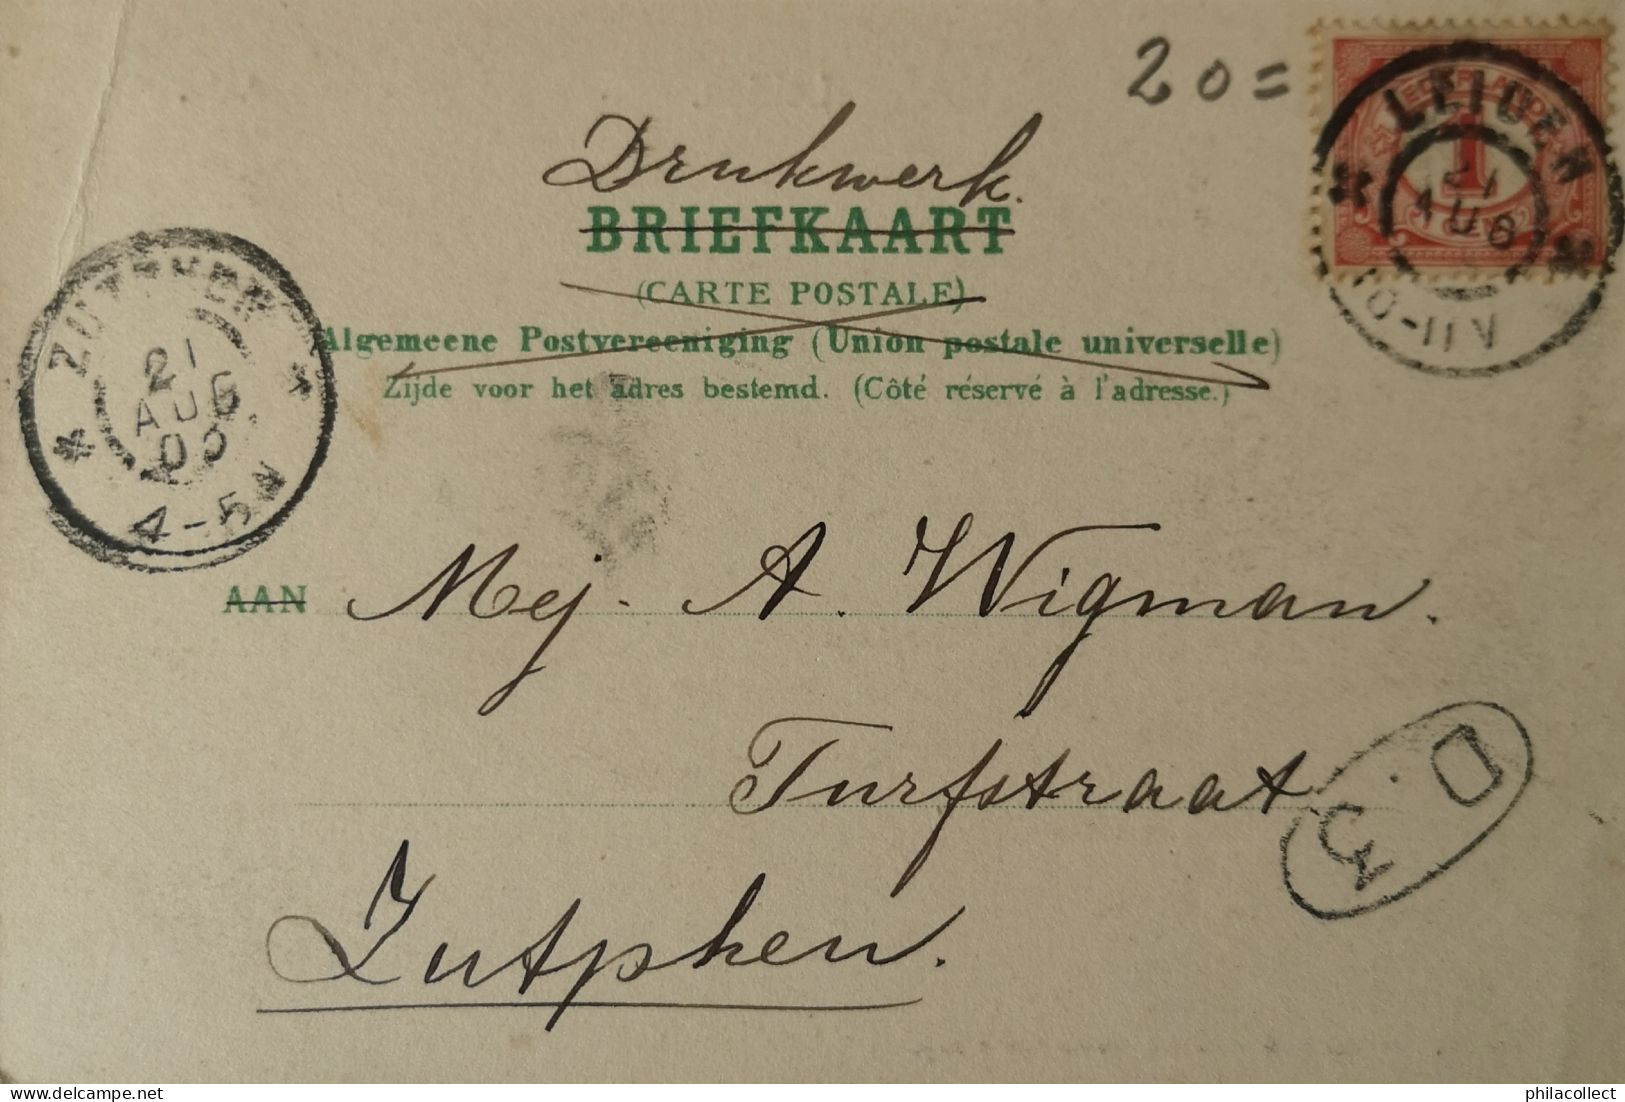 20=
Drukwerk.
BRIEFKAART
(CARTE POSTALE)
Algemeene Postvereeniging (Union postale universelle)
Zijde voor het adres bestemd. (Côté réservé à l'adresse.)
NEDERLAND
1
LEIDEN
21
AUG
10-11V
ZUTPHEN
21
AUG
00
4-5N
AAN Mej. A. Wigman.
Turfstraat
Zutphen.
D
3
philacollect